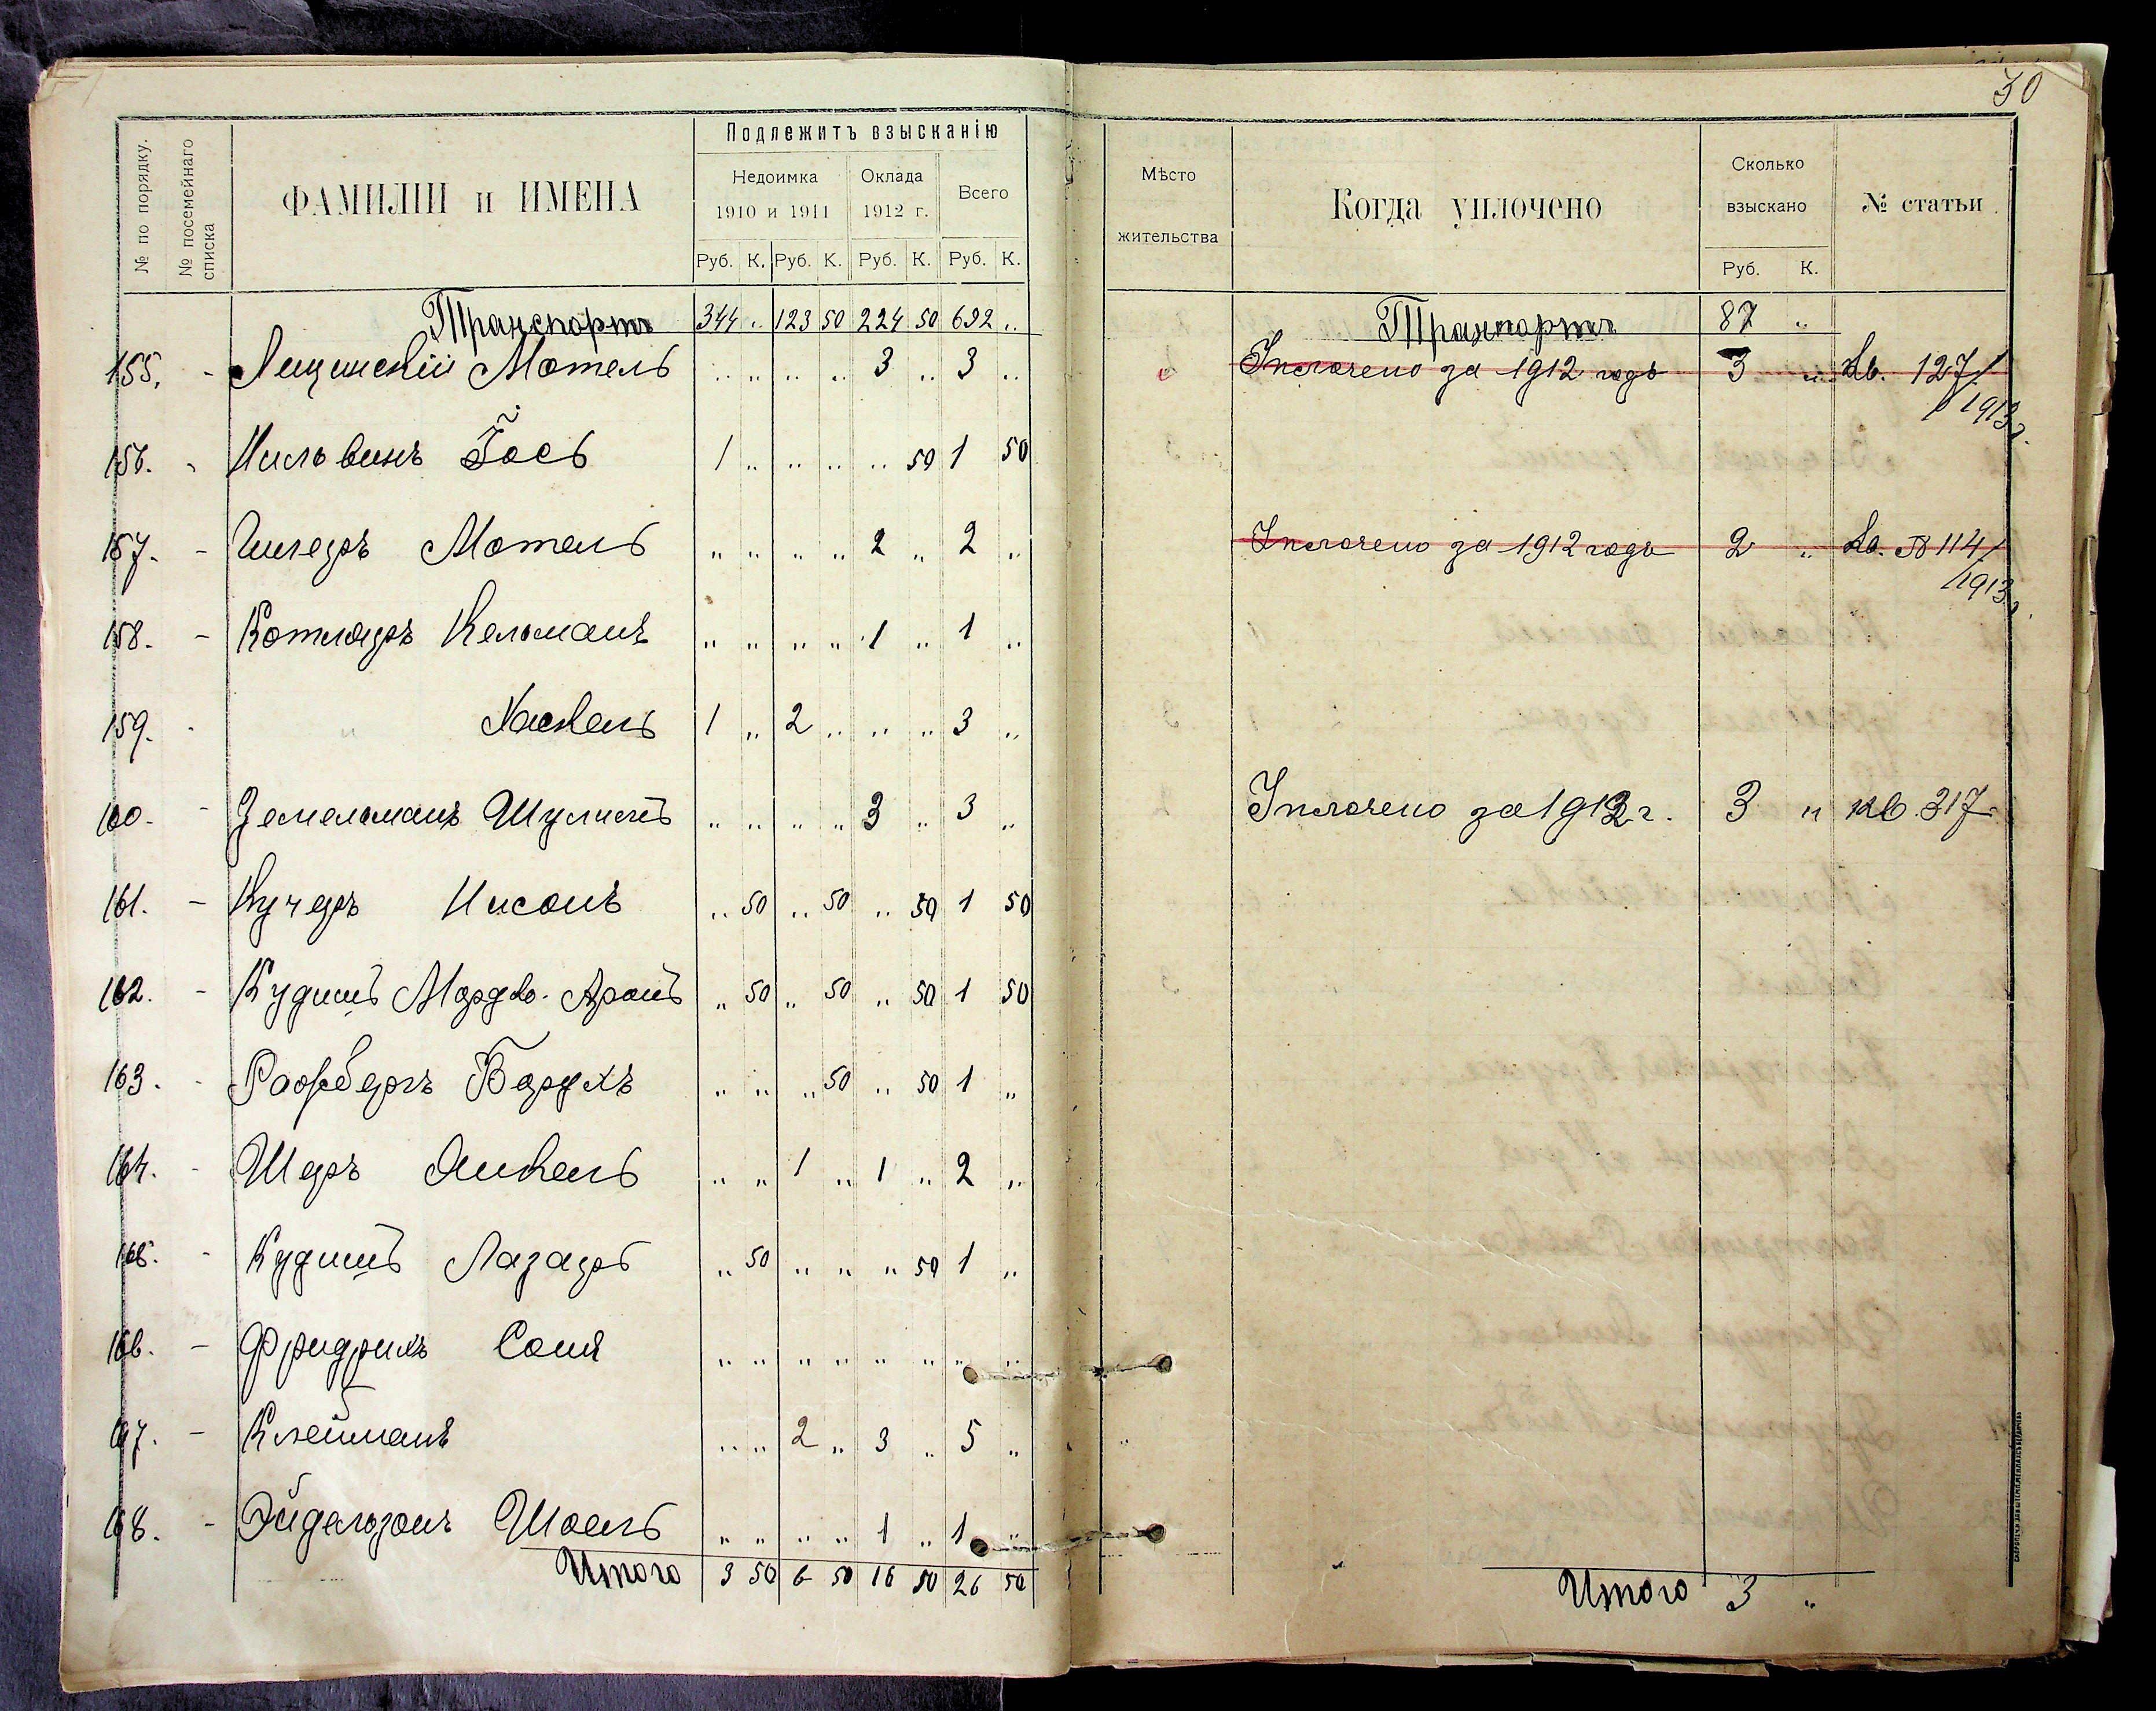 30
№ по порядку.
№ посемейнаго списка
ФАМИЛІИ и ИМЕНА
Подлежитъ взысканію
Недоимка 1910 и 1911
Оклада 1912 г.
Всего
Руб. К. Руб. К. Руб. К. Руб. К.
Мѣсто жительства
Когда уплочено
Сколько взыскано
Руб. К.
№ статьи
Транспортъ 344 „ 123 50 224 50 692 „ Транпортъ 87 „
155. - Лещинскій Мотель „ „ „ „ 3 „ 3 „ Уплочено за 1912 годъ 3 „ Кв. 127/1913 г.
156. - Іось 1 „ „ „ „ 50 1 50
157. - Мотель „ „ „ „ 2 „ 2 „ Уплочено за 1912 годъ 2 „ Кв. № 114/1913 г.
158. - Котляръ Кельманъ „ „ „ „ 1 „ 1 „
159. - „ Хаскель 1 „ 2 „ „ „ 3 „
160. - Земельманъ Шулимъ „ „ „ „ 3 „ 3 „ Уплочено за 1912 г. 3 „ кв. 317
161. - Кучеръ Нисонъ „ 50 „ 50 „ 50 1 50
162. - Кудишъ Мордко-Аронъ „ 50 „ 50 „ 50 1 50
163. - Борухъ „ „ „ 50 „ 50 1 „
164. - Шеръ Янкель „ „ 1 „ 1 „ 2 „
165. - Кудишъ Лазарь „ 50 „ „ „ 50 1 „
166. - Фридрихъ Соня „ „ „ „ „ „ „ „
167. - Клейманъ „ „ 2 „ 3 „ 5 „
168. - Эйдельзонъ Шоель „ „ „ „ 1 „ 1 „
Итого 3 50 6 50 16 50 26 50 Итого 3 „